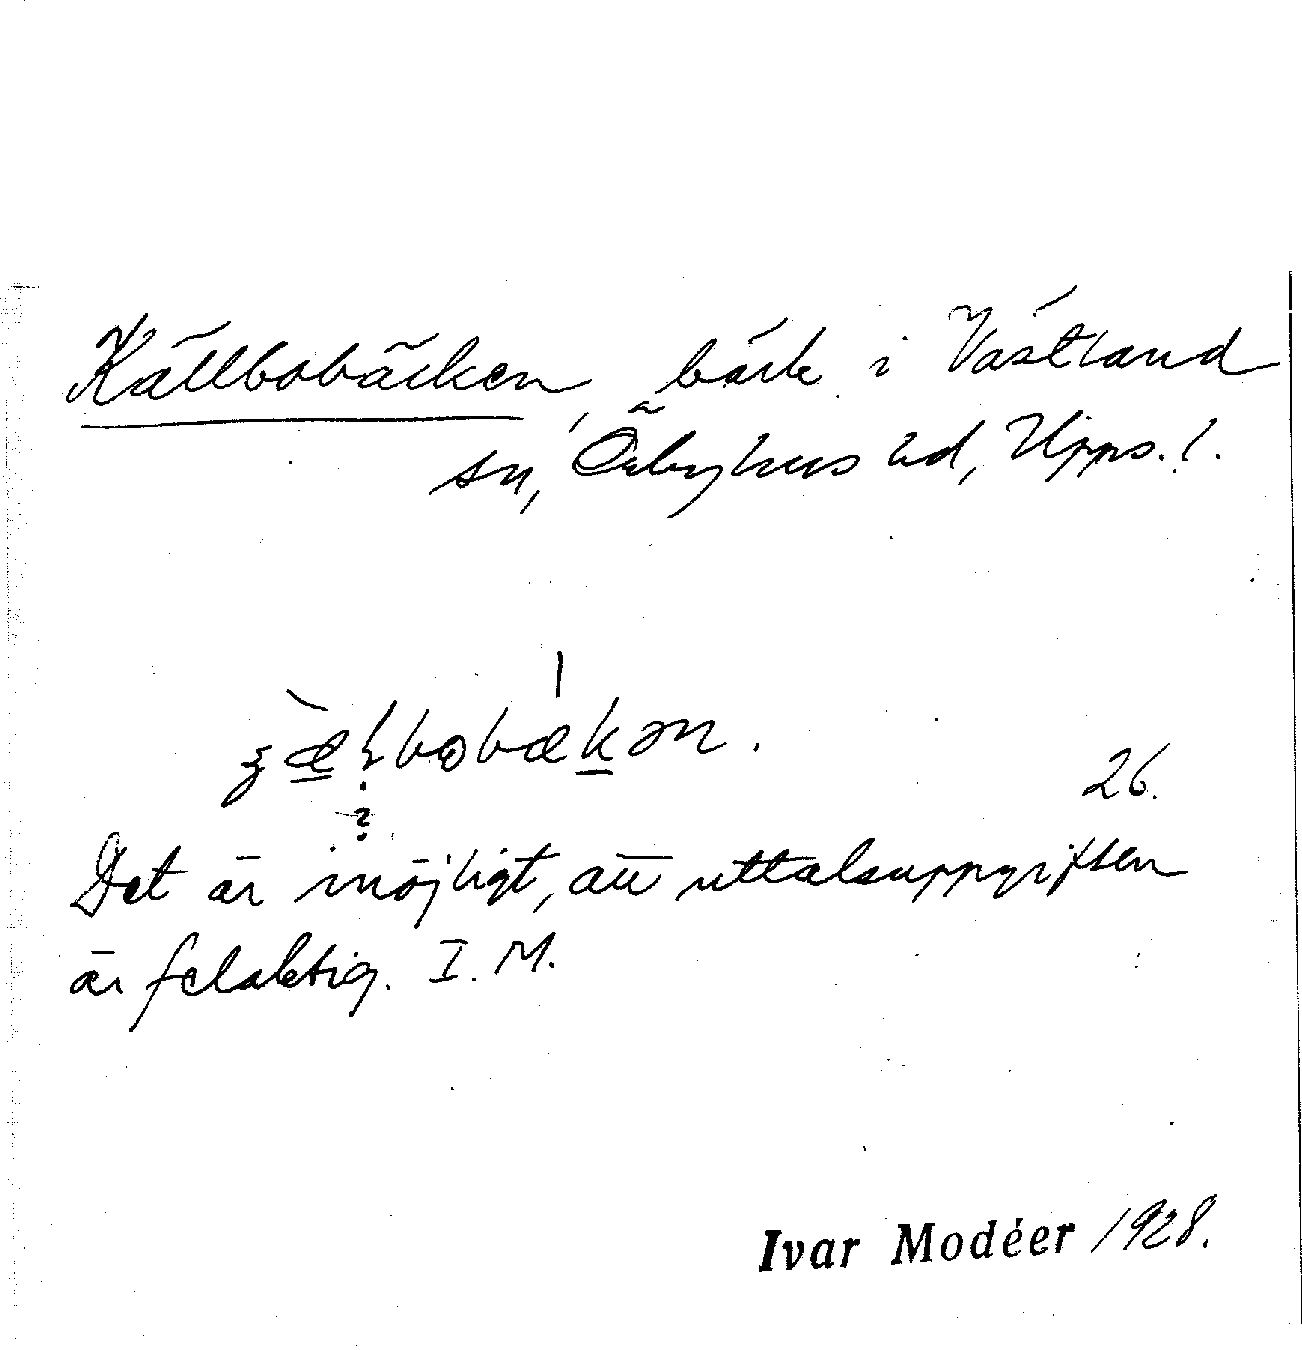 Källbobäcken, bäck i Västland
sn, Örbyhus hd, Upps. l.
26.
?
Det är möjligt, att uttalsuppgiften
är felaktig. I. M.
Ivar Modéer 1928.